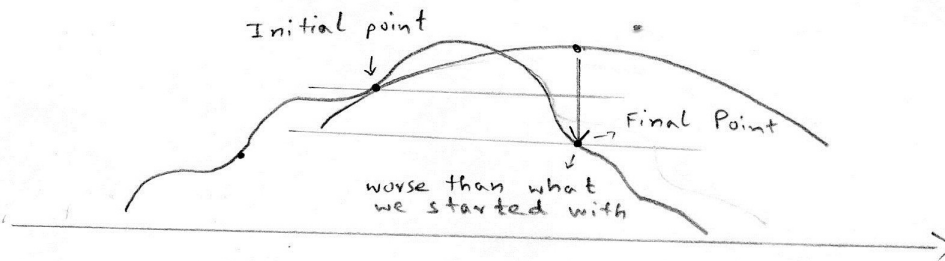 Initial point
Final Point
worse than what
we started with